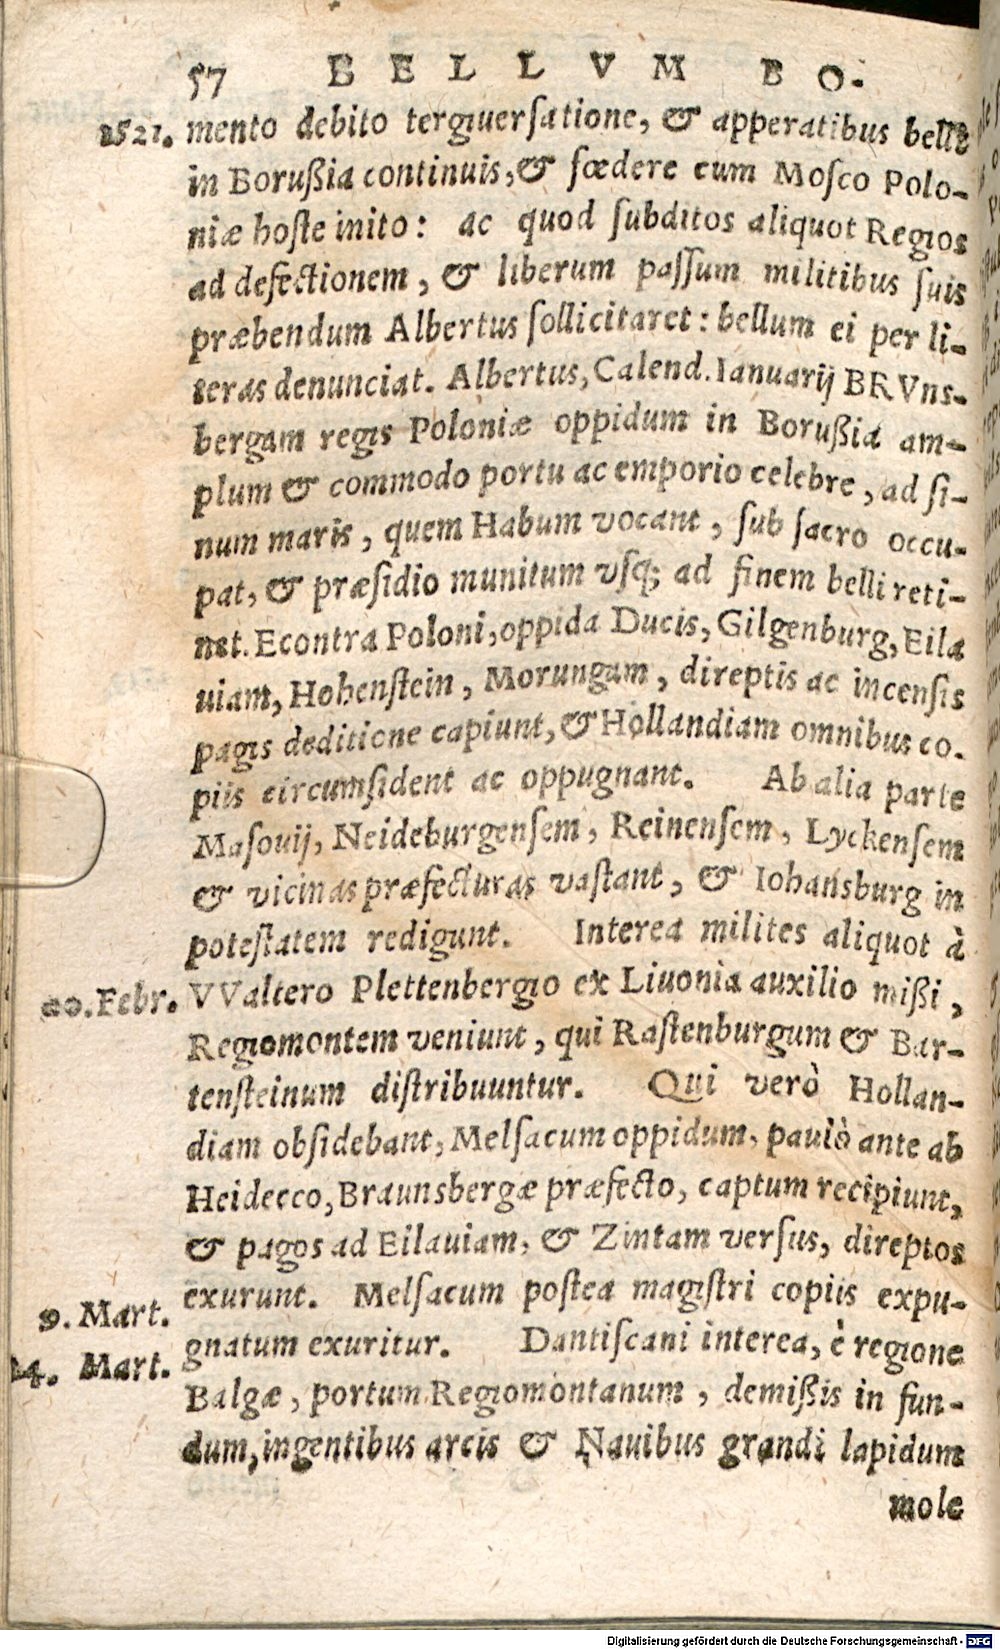 57 BELLVM BO.
1521. mento debito tergiuerſatione, & apperatibus belli
in Borußia continuis, & fœdere cum Moſco Polo-
niæ hoſte inito: ac quod ſubditos aliquot Regios
ad defectionem, & liberum paſſum militibus ſuis
præbendum Albertus ſollicitaret: bellum ei per li-
teras denunciat. Albertus, Calend. Ianuarij BRVns-
bergam regis Poloniæ oppidum in Borußia am-
plum & commodo portu ac emporio celebre, ad ſi-
num maris, quem Habum vocant, ſub ſacro occu-
pat, & præſidio munitum vſq; ad finem belli reti-
net. Econtra Poloni, oppida Ducis, Gilgenburg, Eila
uiam, Hohenſtein, Morungam, direptis ac incenſis
pagis deditione capiunt, & Hollandiam omnibus co.
piis circumſident ac oppugnant. Ab alia parte
Maſouij, Neideburgenſem, Reinenſem, Lyckenſem
& vicinas præfecturas vaſtant, & Iohansburg in
poteſtatem redigunt. Interea milites aliquot à
20. Febr. VValtero Plettenbergio ex Liuonia auxilio mißi,
Regiomontem veniunt, qui Raſtenburgum & Bar-
tenſteinum diſtribuuntur. Qui verò Hollan-
diam obſidebant, Melſacum oppidum, paulò ante ab
Heidecco, Braunsbergæ præfecto, captum recipiunt,
& pagos ad Eilauiam, & Zintam verſus, direptos
exurunt. Melſacum poſtea magiſtri copiis expu-
9. Mart. gnatum exuritur. Dantiſcani interea, è regione
14. Mart. Balgæ, portum Regiomontanum, demißis in fun-
dum, ingentibus arcis & Nauibus grandi lapidum
mole
Digitalisierung gefördert durch die Deutsche Forschungsgemeinschaft - DFG